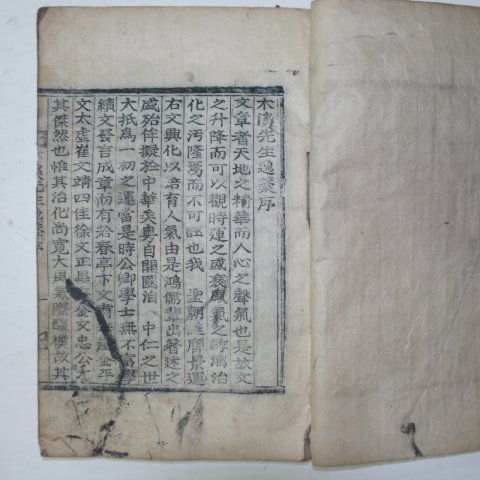 木溪先生逸藁序
文章者天地之精華而人心之聲氣也是故文
之升降而可以觀時運之盛衰風氣之醇漓治
化之汚隆焉而不可誣也我 聖朝運膺景運
右文興化以培育人氣由是鴻儒輩出著述之
盛殆侔擬於中華矣粤自開國洎 中仁之世
大抵爲一初之運當是時公卿學士無不富學
績文發言成章而有若春亭卞文 金平
文太虛崔文靖四佳徐文正 金文忠公尤
其傑然也惟其治化尚寬大風氣際醲樸故其